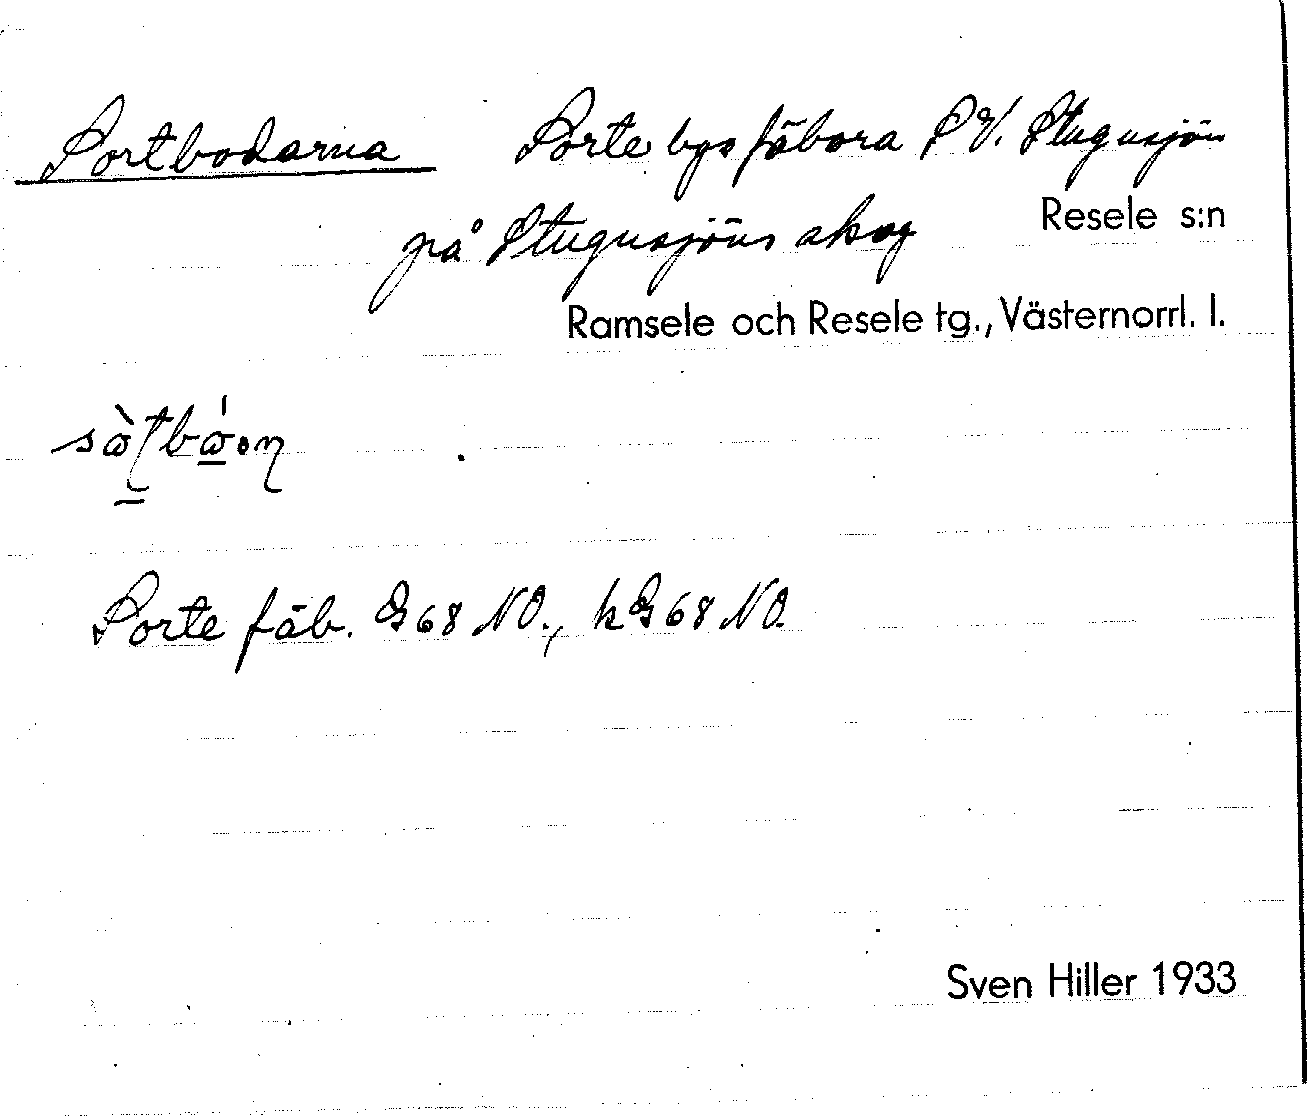 Sörtbodarna Sörte bys fäbora S V. Stugusjön
på Stugusjöns skog Resele s:n
Ramsele och Resele tg., Västernorrl. l.
Sörte fäb. G 68 NO., k G 68 NO.
Sven Hiller 1933